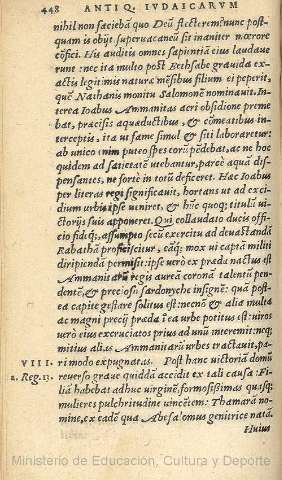 448 ANTIQ. IVDAICARVM
nihil non faciebā quo Deū flecterem: nunc post-
quam is obijt superuacaneū est sit inaniter mœrore
cōfici. His auditis omnes sapiētiā eius laudaue
runt: nec ita multo pòst Bethsabe grauida ex-
actis legitimis naturæ mēsibus filium ei peperit,
quē Nathanis monitu Salomonē nominauit. In-
terea Ioabus Ammanitas acri obsidione preme
bat, præcisis aquæductibus, & cōmeatibus in-
terceptis, ita ut fame simul & siti laboraretur:
ab unico enim puteo spes eorū pēdebat, ac ne hoc
quidem ad satietatē utebantur, parcè aquā dis-
pensantes, ne fortè in totū deficeret. Hæc Ioabus
per literas regi significauit, hortans ut ad exci-
dium urbis ipse ueniret, & hūc quoq; titulū ui-
ctorijs suis apponeret. Qui collaudato ducis offi-
cio fideq;, assumpto secū exercitu ad deuastandā
Rabathā proficiscitur, eāq; mox ui captā militi
diripiendā permisit: ipse uerò ex præda nactus est
Ammanitarū regis aureā coronā talentū pen-
dentē, & precioso sardonyche insignē: quā post-
ea capite gestare solitus est: necnō & alia multa
ac magni precij præda ī ea urbe potitus est: uiros
uerò eius excruciatos prius ad unū interemit: nec
mitius alias Ammanitarū urbes tractauit, pa-
VIII. ri modo expugnatas. Post hanc uictoriā domū
2. Reg. 13. reuerso graue quiddā accidit ex tali causa: Fi-
liā habebat adhuc uirginē, formosissimas quasq;
mulieres pulchritudine uincētem: Thamarā no-
mine, ex eadē qua Absalomus genitrice natā.
Huius
Ministerio de Educación, Cultura y Deporte